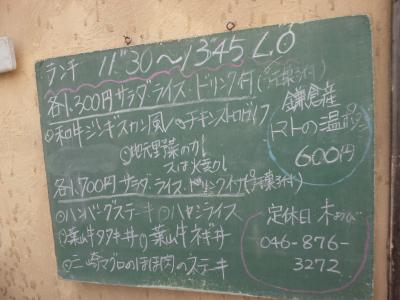 ランチ 11"30〜13"45 L.O
各1,300円 サラダ・ライス・ドリンク付
和牛ジンギスカン風 チキンストロガノフ
地元野菜の
又は
各1,700円 サラダ・ライス・ドリンク
ハンバーグステーキ ハヤシライス
葉山牛タタキ丼 葉山牛ネギ丼
三崎マグロのほほ肉のステーキ
鎌倉産
トマトの温
600円
定休日 木
046-876-
3272